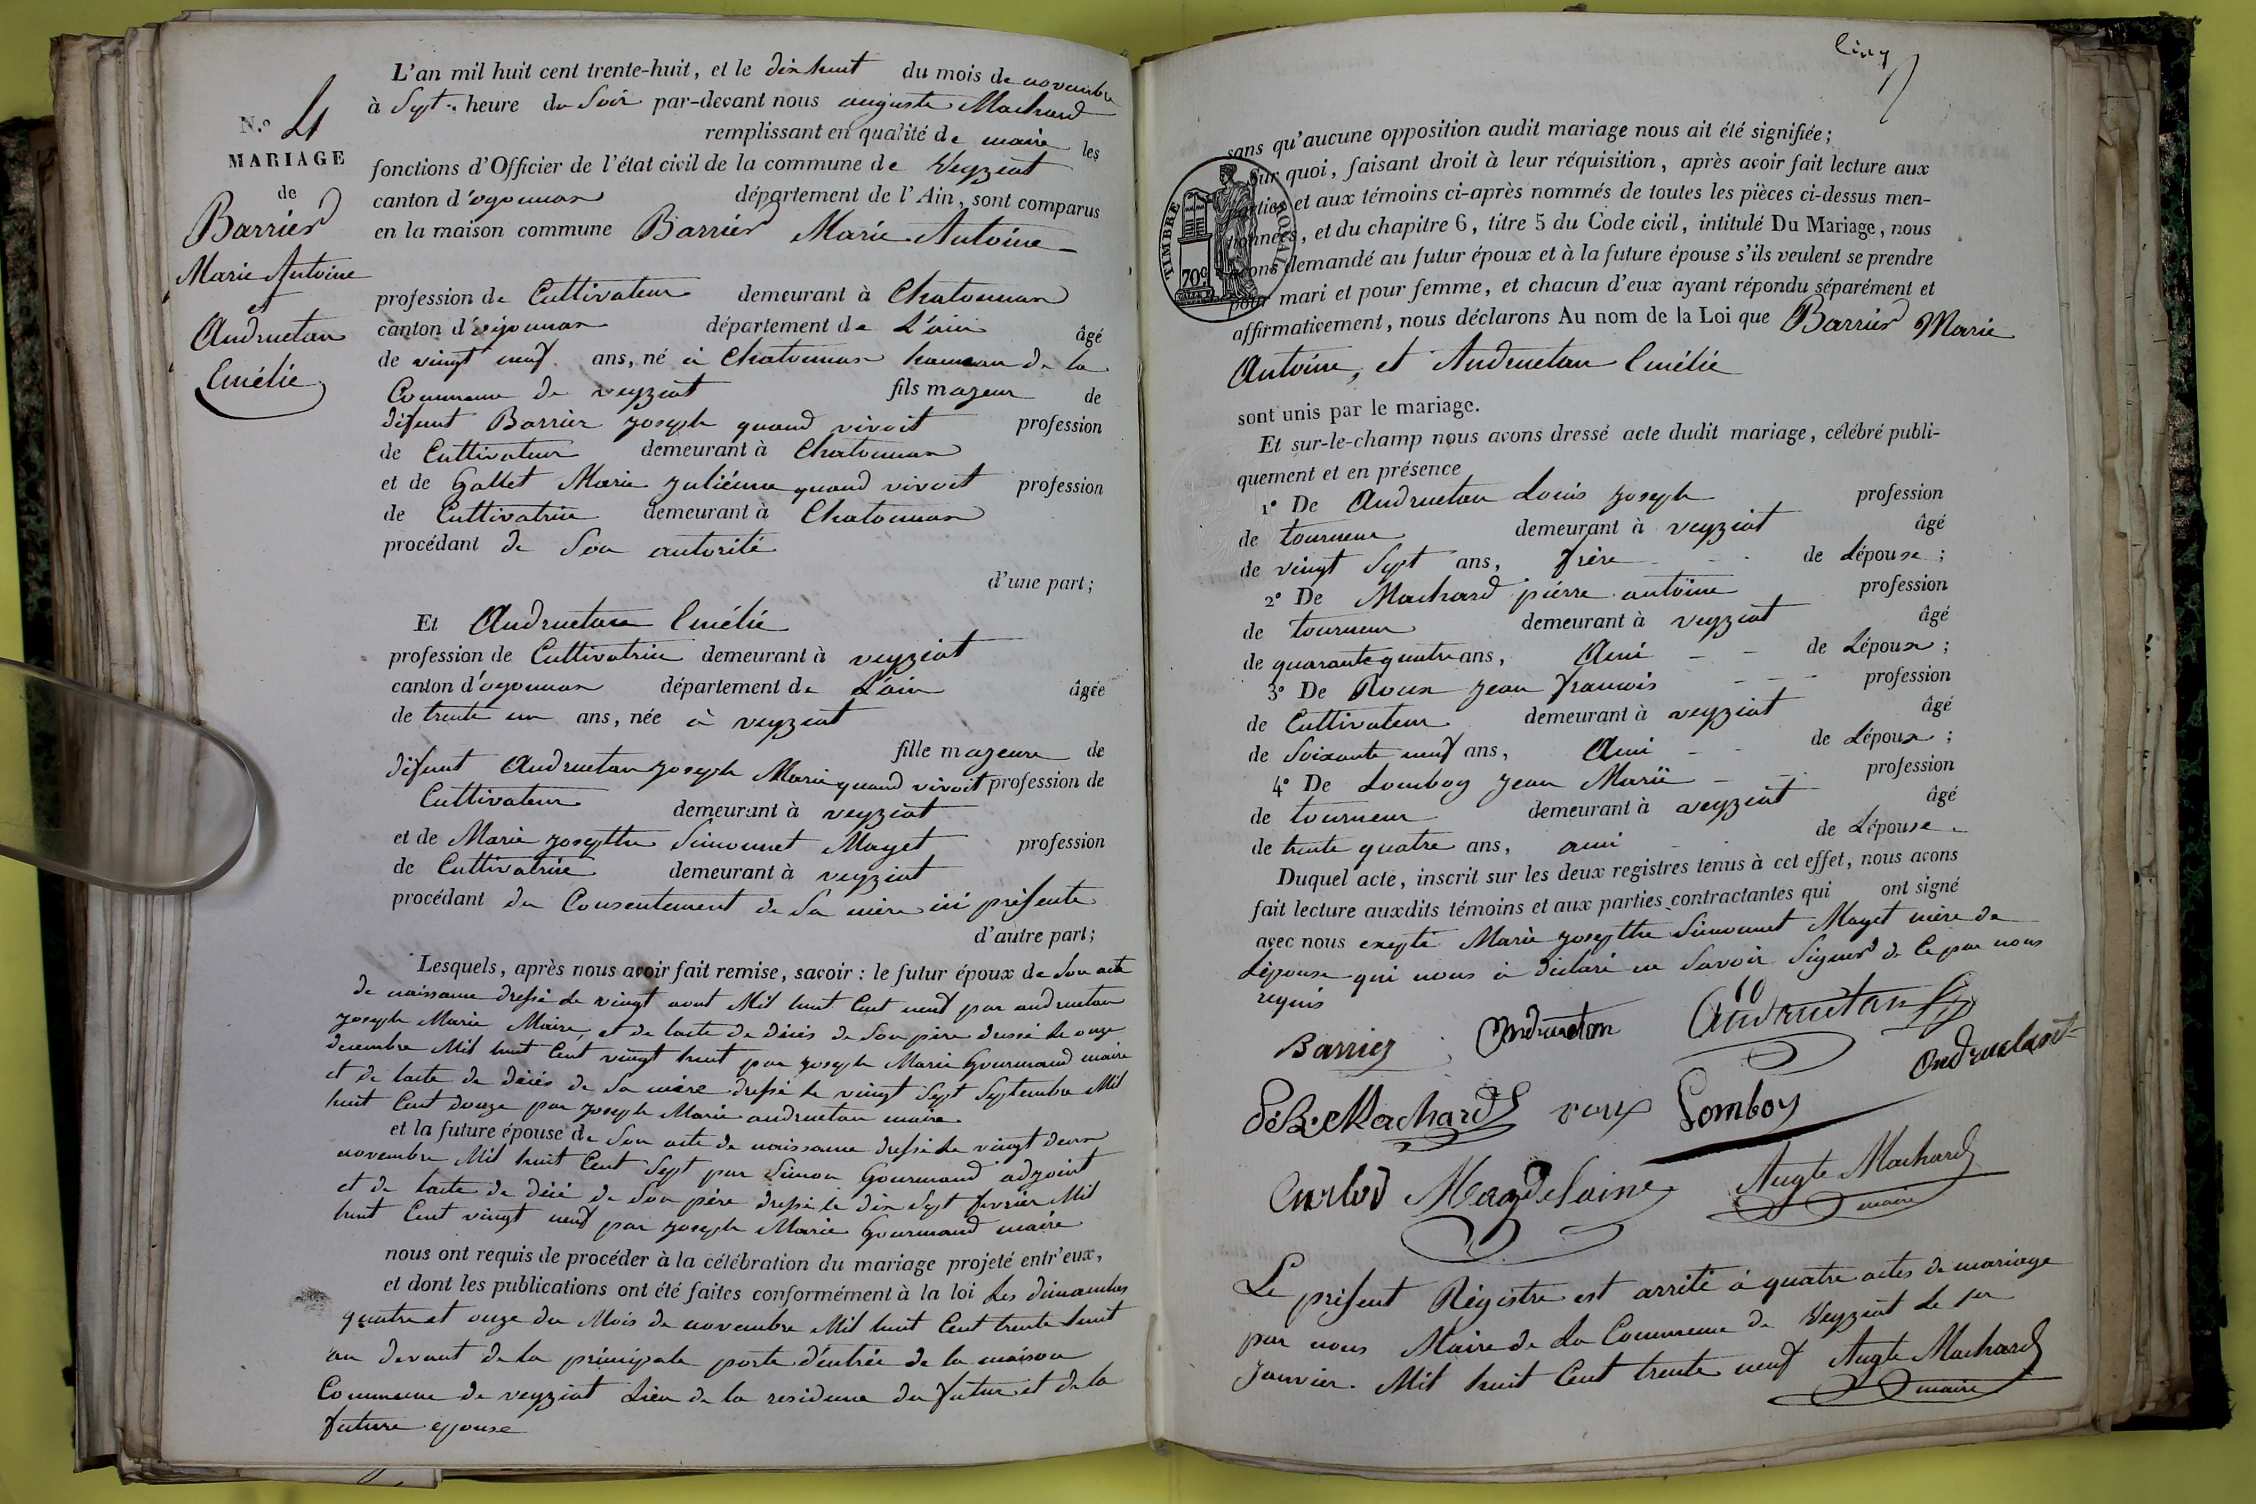 N.o 4
MARIAGE
de
Barrier
Marie Antoine
et
Andruetan
Emélie
L'an mil huit cent trente-huit, et le dix huit du mois de novembre
à Sept heure du Soir par-devant nous auguste Machard
remplissant en qualité de maire les
fonctions d'Officier de l'état civil de la commune de Veyziat
canton d'oyonnax département de l'Ain, sont comparus
en la maison commune Barrier Marie Antoine
profession de Cultivateur demeurant à Chatonnax
canton d'oyonnax département de L'ain âgé
de vingt neuf ans, né à Chatonnax hameau de la
Commune de veyziat fils majeur de
défunt Barrier joseph quand vivoit profession
de Cultivateur demeurant à Chatonnax
et de Gallet Marie julienne quand vivoit profession
de Cultivatrice demeurant à Chatonnax
procédant de Son autorité
d'une part;
Et Andruetan Emélie
profession de Cultivatrice demeurant à veyziat
canton d'oyonnax département de L'ain âgée
de trente un ans, née à veyziat
fille majeure de
défunt Andruetan joseph Marie quand vivoit profession de
Cultivateur demeurant à veyziat
et de Marie josepthe Simonnet Mayet profession
de Cultivatrice demeurant à veyziat
procédant du Consentement de Sa mère ici présente
d'autre part;
Lesquels, après nous avoir fait remise, savoir : le futur époux de Son acte
de naissance dressé le vingt aout Mil huit Cent neuf par andruetan
joseph Marie Maire, et de lacte de décès de Son père dressé le onze
decembre Mil huit Cent vingt huit par joseph Marie Gourmand maire
et de lacte de décés de Sa mère dressé le vingt Sept Septembre Mil
huit Cent douze par joseph Marie andruetan maire
et la future épouse de Son acte de naissance dressé le vingt deux
novembre Mil huit Cent Sept par Simon Gourmand adjoint
et de lacte de décé de Son père dressé le dix Sept février Mil
huit Cent vingt neuf par joseph Marie Gourmand maire
nous ont requis de procéder à la célébration du mariage projeté entr'eux,
et dont les publications ont été faites conformément à la loi Les dimanches
quatre et onze du Mois de novembre Mil huit Cent trente huit
au devant de la principale porte d'entrée de la maison
Commune de veyziat Lieu de la residence du futur et de la
future epouse
Cinq
TIMBRE ROYAL
70c
sans qu'aucune opposition audit mariage nous ait été signifiée;
Sur quoi, faisant droit à leur réquisition, après avoir fait lecture aux
parties et aux témoins ci-après nommés de toutes les pièces ci-dessus men-
tionnées, et du chapitre 6, titre 5 du Code civil, intitulé Du Mariage, nous
avons demandé au futur époux et à la future épouse s'ils veulent se prendre
pour mari et pour femme, et chacun d'eux ayant répondu séparément et
affirmativement, nous déclarons Au nom de la Loi que Barrier Marie
Antoine, et Andruetan Emélie
sont unis par le mariage.
Et sur-le-champ nous avons dressé acte dudit mariage, célébré publi-
quement et en présence
1° De Andruetan Louis joseph profession
de tourneur demeurant à veyziat âgé
de vingt Sept ans, frère de Lépouse;
2° De Machard pierre antoine profession
de tourneur demeurant à veyziat âgé
de quarante quatre ans, Ami de Lépoux;
3° De Roux jean francois profession
de Cultivateur demeurant à veyziat âgé
de Soixante neuf ans, Ami de Lépoux;
4° De Lomboy jean Marie profession
de tourneur demeurant à veyziat âgé
de trente quatre ans, ami de Lépouse
Duquel acte, inscrit sur les deux registres tenus à cet effet, nous avons
fait lecture auxdits témoins et aux parties contractantes qui ont signé
avec nous excepté Marie josepthe Simonnet Mayet mère de
Lépouse qui nous à déclaré ne Savoir Signer de Ce par nous
requis
Barrier Andruetan Andruetan
Andruetan
Machard roux Lomboy
Curlod Magdelaine Augte Machard
maire
Le présent Régistre est arrêté à quatre actes de mariage
par nous Maire de La Commune de Veyziat Le 1er
Janvier. Mil huit Cent trente neuf Augte Machard
maire